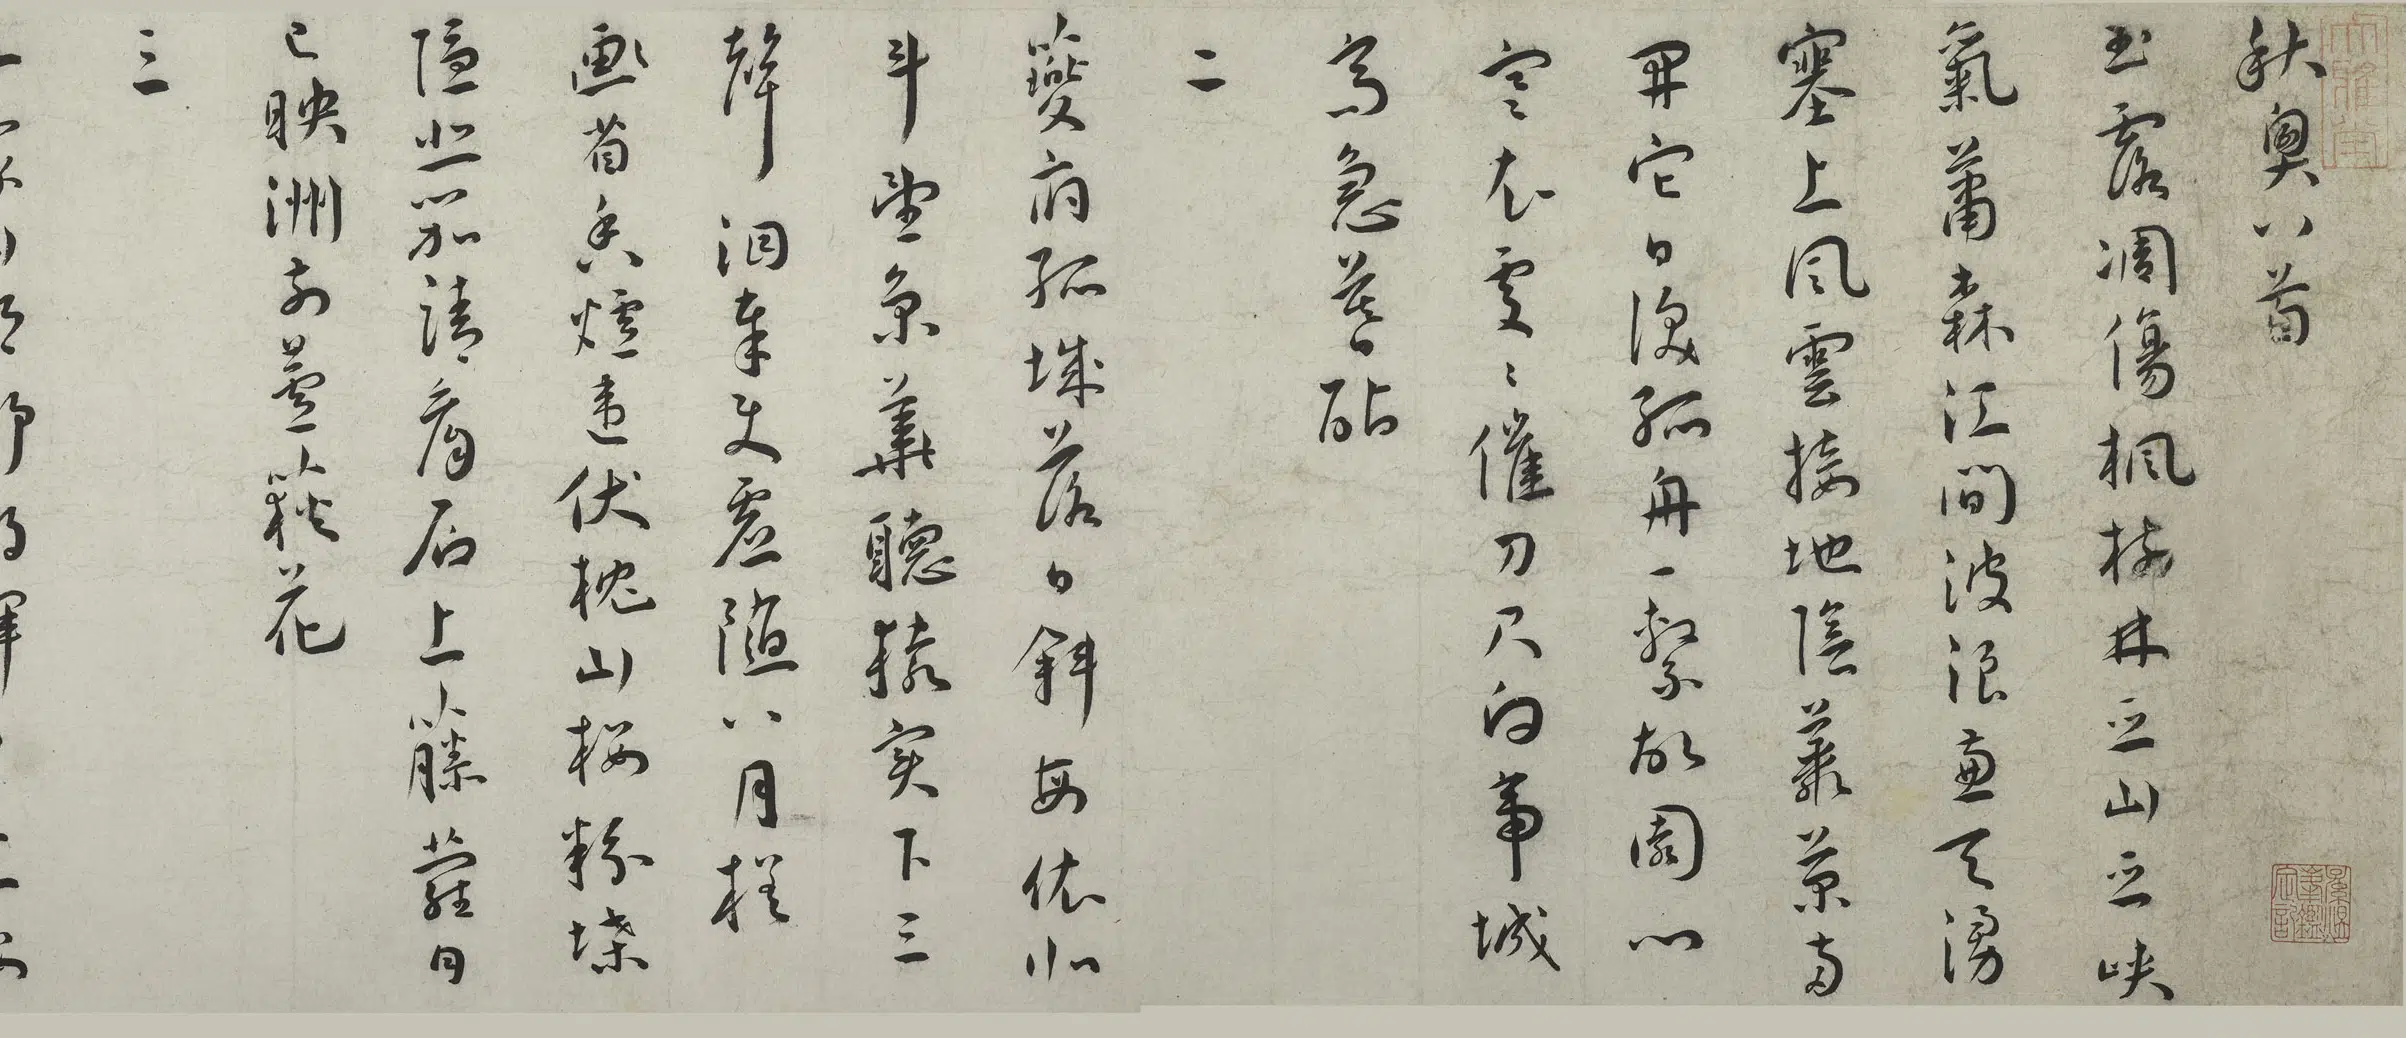 秋興八首
玉露凋傷楓樹林巫山巫峽
氣蕭森江間波浪兼天湧
塞上風雲接地陰叢菊兩
開它日淚孤舟一繫故園心
寒衣處〻催刀尺白帝城
高急暮砧
二
夔府孤城落日斜每依北
斗望京華聽猿實下三
聲泪奉使虛隨八月槎
畫省香爐違伏枕山樓粉堞
隱悲笳請看石上藤蘿月
已映洲前蘆荻花
三